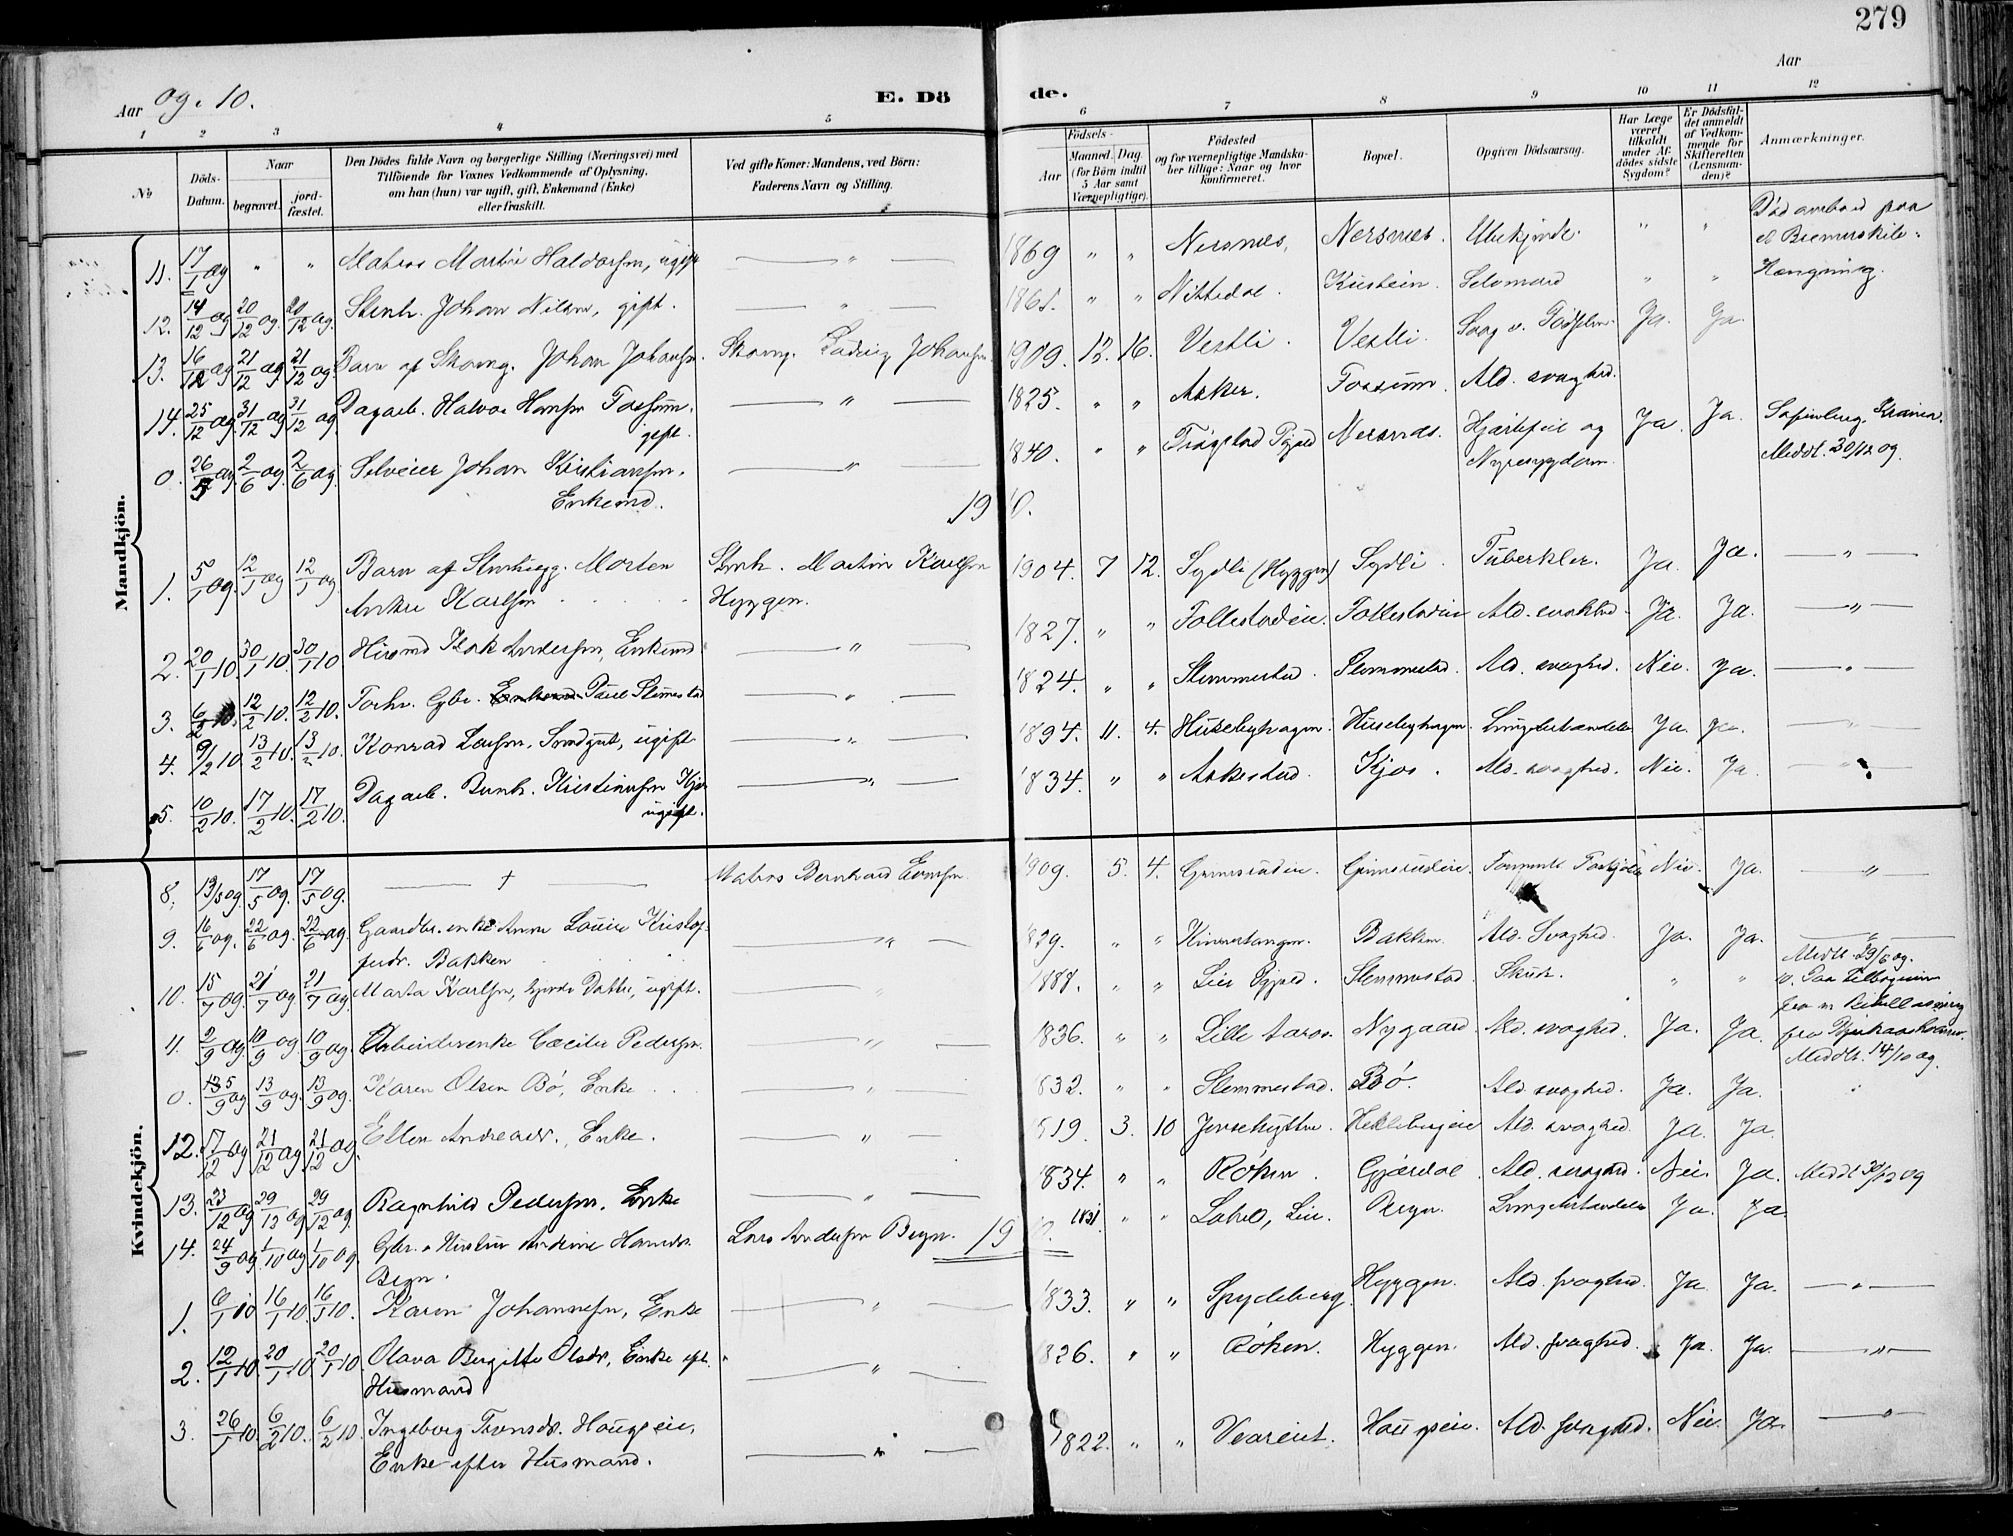 279
Aar 09. 10.
E. Dö
de.
Aar
1 2 3 4 5 6 7 8 9 10 11 12
No
Döds-Datum.
Naar
begravet.
jord-fæstet.
Den Dödes fulde Navn og borgerlige Stilling (Næringsvei) med
Tilföiende for Voxnes Vedkommende af Oplysning,
om han (hun) var ugift, gift, Enkemand (Enke)
eller fraskilt.
Ved gifte Koner: Mandens, ved Börn:
Faderens Navn og Stilling.
Födsels-
Aar
Maaned. Dag.
(for Börn indtil
5 Aar samt
Værnepligtige).
Födested
og for værnepligtige Mandska-
ber tillige: Naar og hvor
konfirmeret.
Bopæl.
Opgiven Dödsaarsag.
Har Læge
været
tilkaldt
under Af-
dödes sidste
Sygdom?
Er Dödsfal-
det anmeldt
af Vedkom-
mende for
Skifteretten
(Lensman-
den)?
Anmærkninger.
Mandkjön.
11. 17/1 09 " " Matros Martin Haldorsen, ugift " 1869 " " Nersnes, Nersnes. Ubekjendt. " " Död ombord paa
12. 14/12 09 20/12 09 20/12 09 Stenh. Johan Nilsen, gift. " " " Nittedal. Selvmord " " Hængning.
13. 16/12 09 21/12 09 21/12 09 Barn af Skomg. Johan Johansen. Skomg. Ludvig Johansen 1909. 12. 16. Vestli. Vestli. Svag v. Födselen. Ja. Ja.
14. 25/12 09 31/12 09 31/12 09 Dagarb. Halvor Hansen Fossum, gift. " 1825. " " Asker. Fossum. Ald. svaghed.
0. 26/5 09 2/6 09 2/6 09 Selveier Johan Kristiansen, Enkemd. " 1840. " " Trögstad Pgjeld Nersnes. Hjertefeil og Nyresygdom. Ja. Ja. Meddt. 30/12 09.
1910.
1. 5/1 09. 12/1 09 12/1 09 Barn af Morten Anker Karlsen Stenh. Martin Karlsen Hyggen. 1904. 7 12. Sydli (Hyggen) Sydli. Tuberkler. Ja. Ja. "
2. 20/1 10 30/1 10. 30/1 10 Husmd Isak Andersen, Enkemd " 1827. " " Follestadeie. Follestadeie Ald. svakhed. Ja. Ja. "
3. 6/2 10. 12/2 10. 12/2 10. Forhv. Gbr. Paul Slemestad " 1824. " " Slemmestad. Slemmestad. Ald. svaghed. Nei. Ja. "
4. 9/2 10 13/2 10. 13/2 10. Konrad Larsen, Smdgut, ugift " 1894. 11. 4. Husebyhagen. Husebyhagen. Lungebetændelse Ja. Ja. "
5. 10/2 10. 17/2 10. 17/2 10. Dagarb. Bernh. Kristiansen Kjos ugift. " 1834. " " Askestad. Kjos. Ald. svaghed. Nei. Ja. "
Kvindekjön.
8. 13/5 09 17/5 09. 17/5 09. † Matros Bernhard Evensen. 1909. 5. 4. Grimsrudeie. Grimsrudeie. Nei. Ja. "
9. 16/6 09. 22/6 09. 22/6 09. Gaardbr. enke Anne Lovise Kristof-
fersdr. Bakken " 1829. " " Bakken. Ald. Svaghed. Ja. Ja. Meddt. 29/6 09.
10. 15/7 09. 21/7 09 21/7 09 Marta Karlsen, Gjorde Datter, ugift. " 1888. " " Lier Pgjeld. Slemmestad " "
11. 2/9 09 10/9 09 10/9 09 Arbeiderenke Cæcilie Pedersen. " 1836. " " Lille Aaros. Nygaard Ald. svaghed. Ja. Ja. Meddt. 14/10 09.
0. 5/9 09 13/9 09. 13/9 09. Karen Olsen Bö, Enke " 1832. " " Slemmestad. Bö. Ald. svaghed. Ja. Ja.
12. 17/12 09 21/12 09 21/12 09. Ellen Andreasdr., Enke. " 1819. 3. 10 Jernehytten. Heklebergeie Ald. svaghed. Ja. Ja.
13. 23/12 09 29/12 09 29/12 09 Ragnhild Pedersen. Enke " 1834. " " Röken. Gjerdal. Ald. svaghed. Nei. Ja. Meddt 30/12 09
14. 24/9 09. 1/10 09 1/10 09. Gbr. Hustru Andrine Hansdr. Begn. Lars Andersen Begn. 1831 " " Lahell, Lier. Begn. Lungebetændelse Ja. Ja.
1910.
1. 6/1 10 16/1 10. 16/1 10. Karen Johannesen, Enke " 1833. " " Spydeberg. Hyggen. Ald. svaghed. Ja. Ja. "
2. 12/1 10. 20/1 10 20/1 10 Olava Birgitte Olsdr, Enke eft. Husmand " 1826. " " Röken. Hyggen. Ald. svaghed. Ja. Ja. "
3. 26/1 10 6/2 10. 6/2 10. Ingeborg Haugseie,
Enke efter Husmand. " 1822. " " Haugseie. Ald. svaghed. Nei. Ja. "